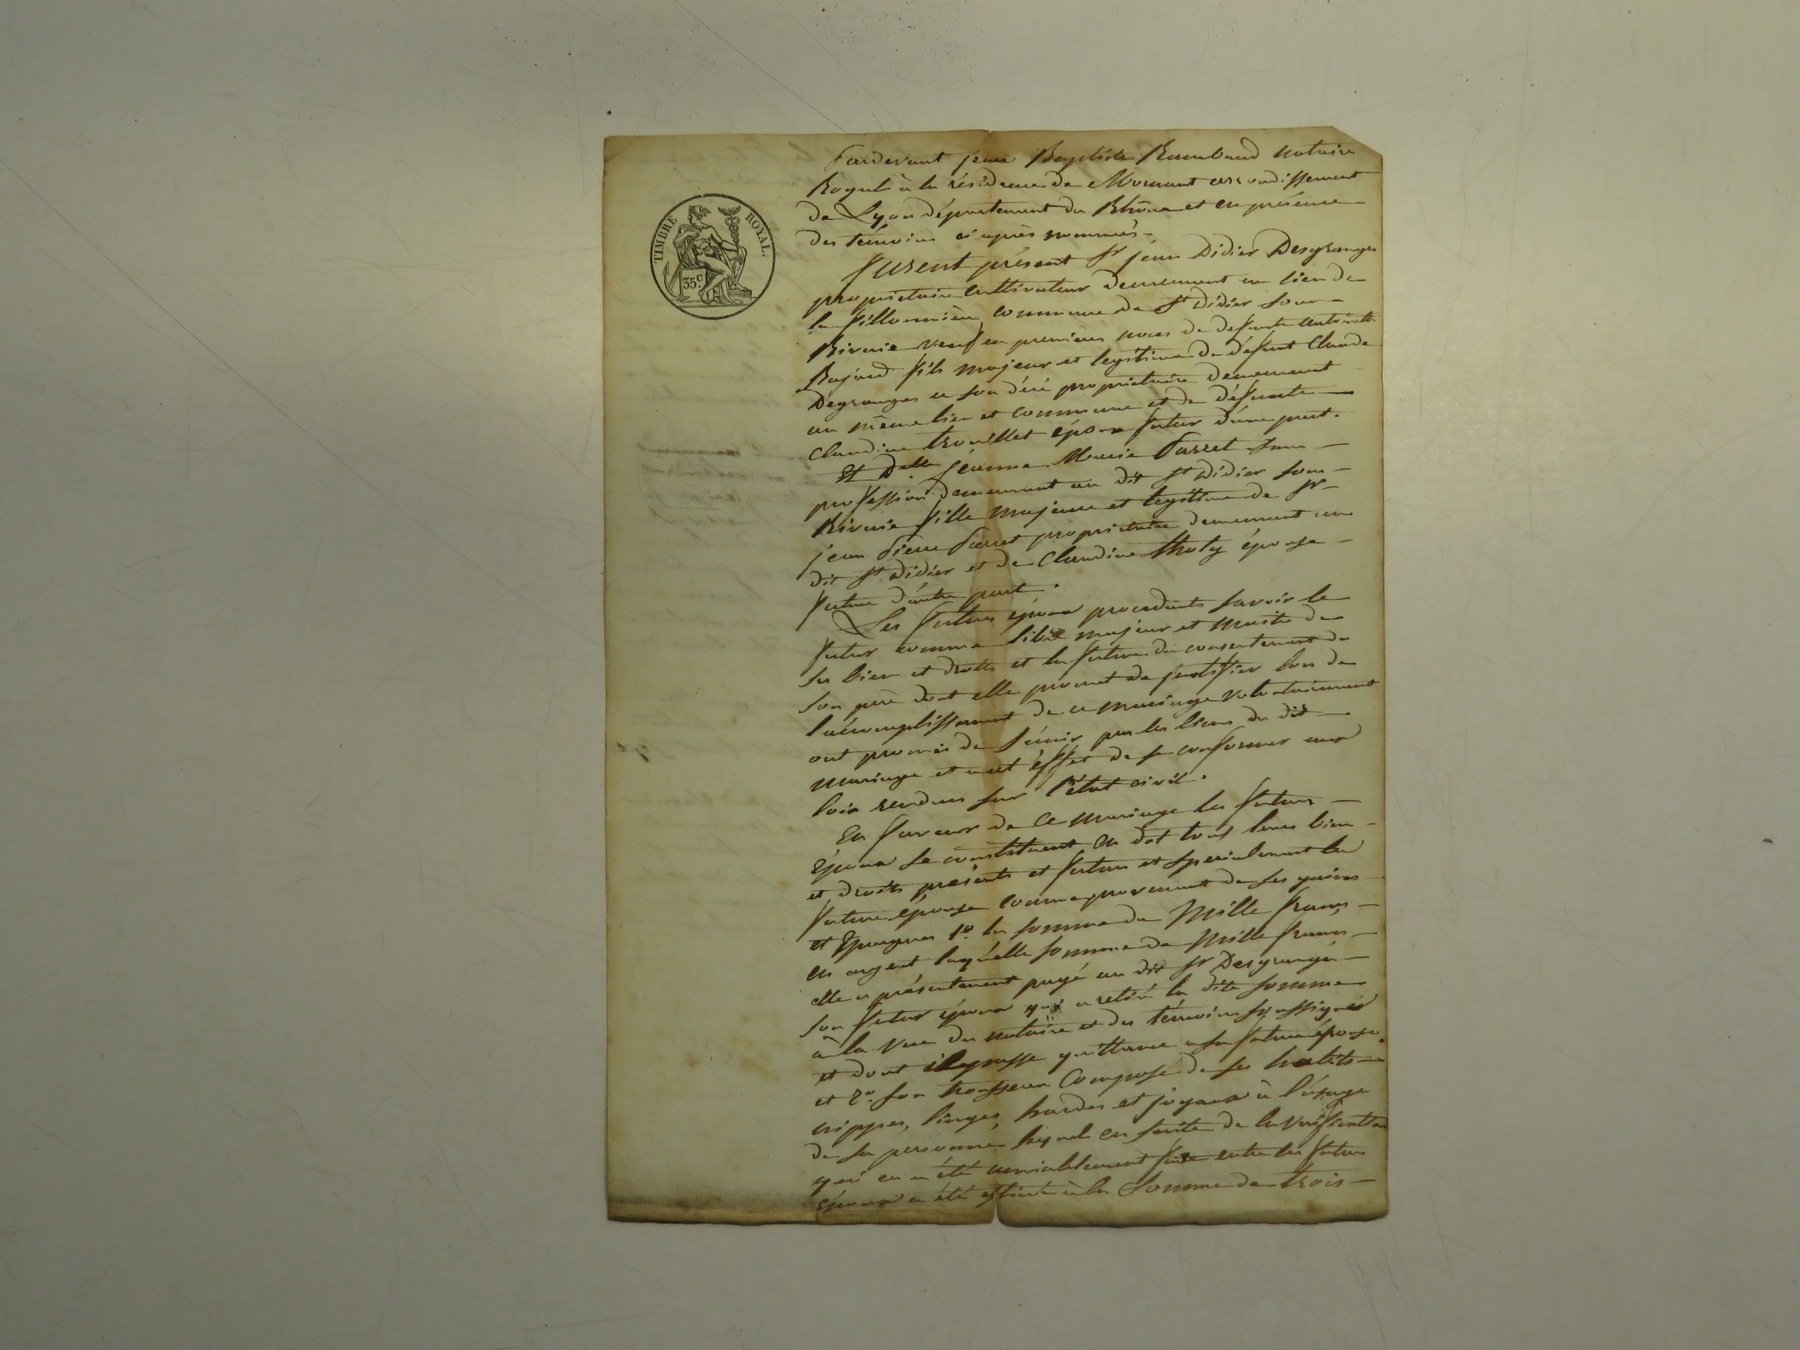 TIMBRE ROYAL.
35c
Pardevant jean Baptiste Rambaud notaire
Royal à la résidence de Mornant arrondissement
de Lyon département du Rhône et en présence
des témoins ci après nommés
furent présent Sr jean Didier Desgranges
propriétaire cultivateur demeurant au lieu de
la commune de St didier sous
Riverie veuf en premières noces de defunte antoinette
fils majeur et legitime de défunt Claude
Degranges a son décé propriétaire demeurant
au même lieu et commune et de défunte
Claudine trouillet époux futur d'une part.
Et Delle jeanne Marie Parret sans
profession demeurant au dit St didier sous
Riverie fille majeure et legitime de Sr
jean Pierre Parret propriétaire demeurant au
dit St didier et de Claudine tholy épouse
future d'autre part.
Les futurs époux procedants savoir le
futur comme libre majeur et maitre de
ses bien et droits et la future du consentement de
son père dont elle promet de justifier lors de
l'accomplissement de ce mariage volontairement
ont promis de s'unir par les liens du dit
mariage et a cet éffet de se conformer aux
lois rendues sur l'état civil.
En faveur de ce mariage les futurs
Epoux se constituent en dot tous leurs bien
et droits présents et futurs et specialement la
future épouse comme provenant de ses gains
et Epargnes 1o la somme de Mille francs
en argent laquelle somme de Mille francs
elle a présentement payé au dit Sr Desgranges
son futur époux qui a retiré la dite somme
à la vue du notaire et des témoins soussignés
et dont il passe quittance a sa future épouse.
et 2o son trousseau Composé de ses habits
nippes, linges, hardes et joyaux à l'usage
de sa personne lequel en suite de la vérification
qui en a été amiablement faite entre les futurs
époux a été estimé à la Somme de trois